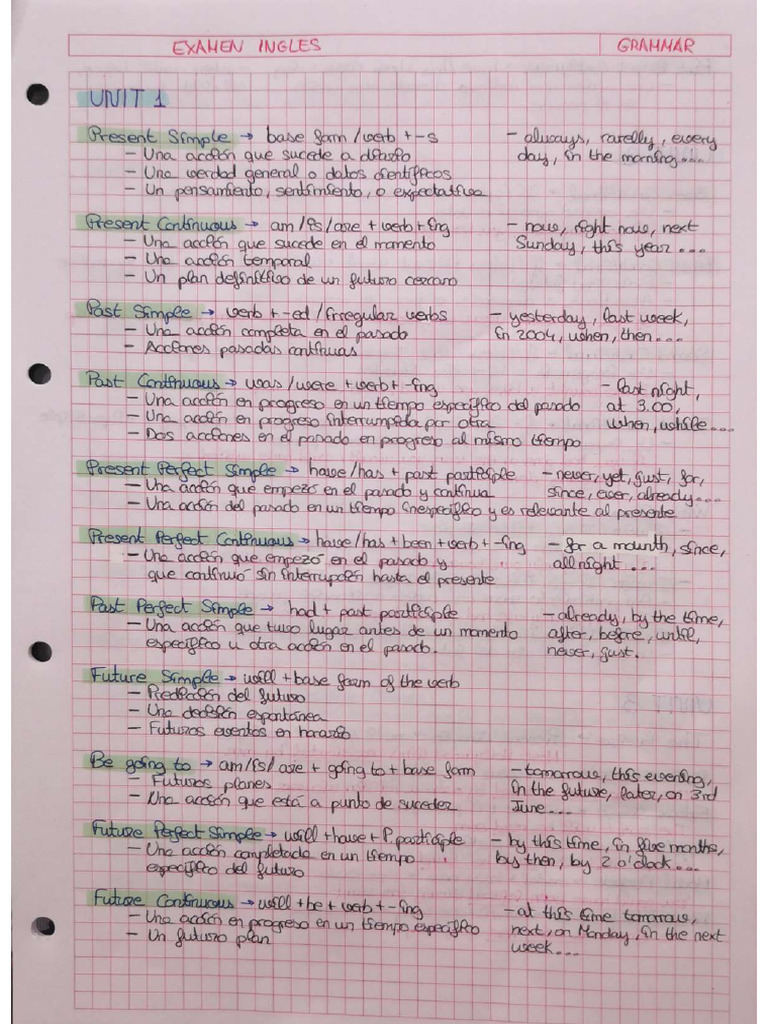 EXAMEN INGLES GRAMMAR
UNIT 1
Present Simple → base form / verb + -s - always, rarelly, every
- Una acción que sucede a diario day, in the morning...
- Una verdad general o datos científicos
- Un pensamiento, sentimiento, o expectativa
Present Continuous → am/is/are + verb + ing - now, right now, next
- Una acción que sucede en el momento Sunday, this year...
- Una acción temporal
- Un plan definitivo de un futuro cercano
Past Simple → verb + -ed / irregular verbs - yesterday, last week,
- Una acción completa en el pasado in 2004, when, then...
- Acciones pasadas continuas
Past Continuous → was/were + verb + -ing - last night,
- Una acción en progreso en un tiempo específico del pasado at 3.00,
- Una acción en progreso interrumpida por otra when, while...
- Dos acciones en el pasado en progreso al mismo tiempo
Present Perfect Simple → have/has + past participle - never, yet, just, for,
- Una acción que empezó en el pasado y continua since, ever, already...
- Una acción del pasado en un tiempo inespecífico y es relevante al presente
Present Perfect Continuous → have/has + been + verb + -ing - for a mounth, since,
- Una acción que empezó en el pasado y all night...
que continuó sin interrupción hasta el presente
Past Perfect Simple → had + past participle - already, by the time,
- Una acción que tuvo lugar antes de un momento after, before, until,
específico u otra acción en el pasado. never, just.
Future Simple → will + base form of the verb
- Predicción del futuro
- Una decisión espontánea
- Futuros eventos en horario
Be going to → am/is/are + going to + base form - tomorrow, this evening,
- Futuros planes in the future, later, on 3rd
- Una acción que está a punto de suceder June...
Future Perfect Simple → will + have + P. participle - by this time, in five months,
- Una acción completada en un tiempo by then, by 2 o'clock...
específico del futuro
Future Continuous → will + be + verb + -ing - at this time tomorrow,
- Una acción en progreso en un tiempo específico next, on Monday, in the next
- Un futuro plan week...